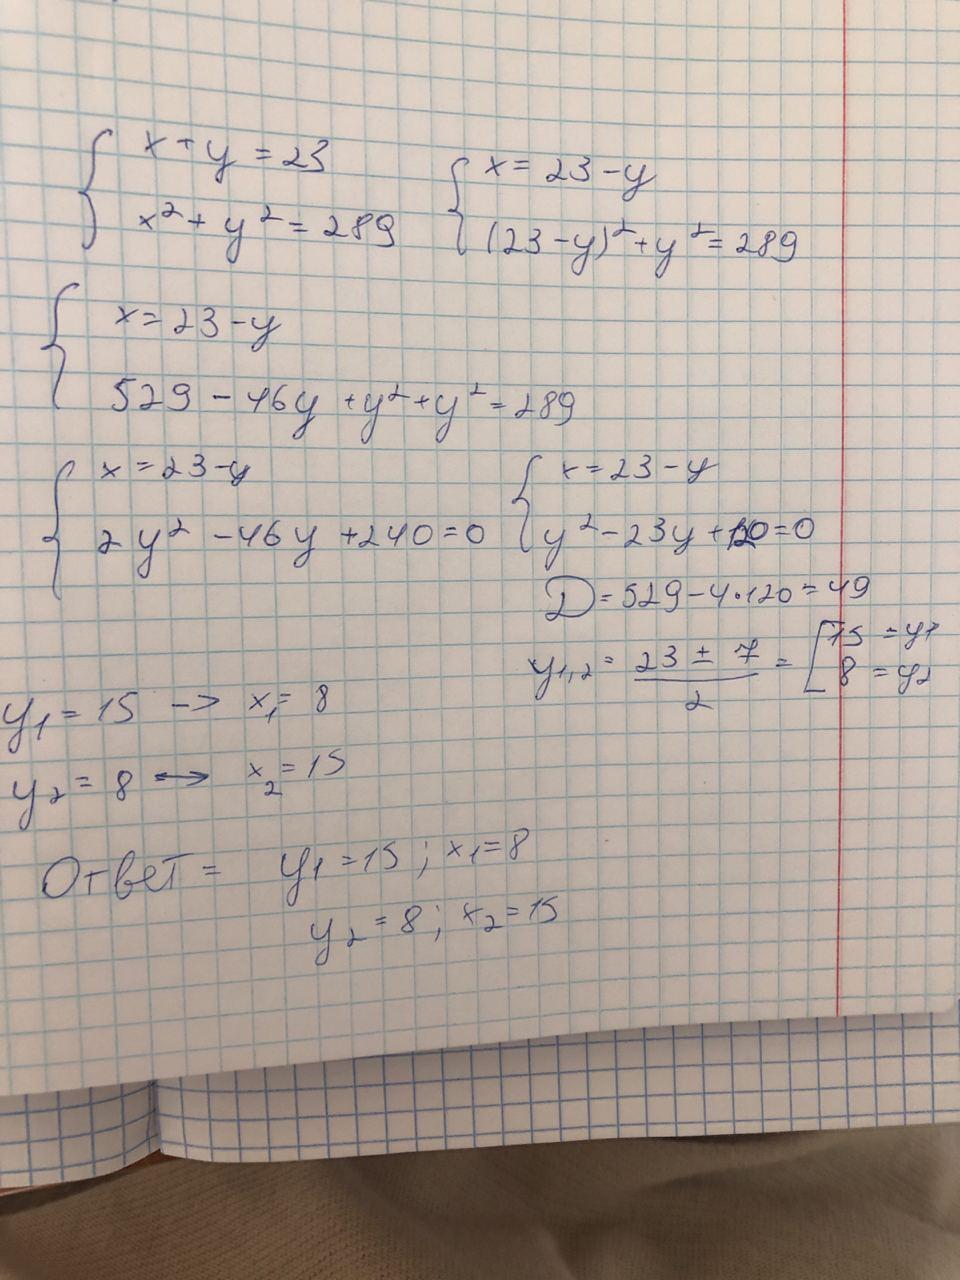 { x + y = 23
x² + y² = 289
{ x = 23 - y
(23 - y)² + y² = 289
{ x = 23 - y
529 - 46y + y² + y² = 289
{ x = 23 - y
2y² - 46y + 240 = 0
{ x = 23 - y
y² - 23y + 120 = 0
D = 529 - 4·120 = 49
y₁,₂ = (23 ± 7)/2 = [ 15 = y₁
8 = y₂
y₁ = 15 -> x₁ = 8
y₂ = 8 -> x₂ = 15
Ответ = y₁ = 15 ; x₁ = 8
y₂ = 8 ; x₂ = 15